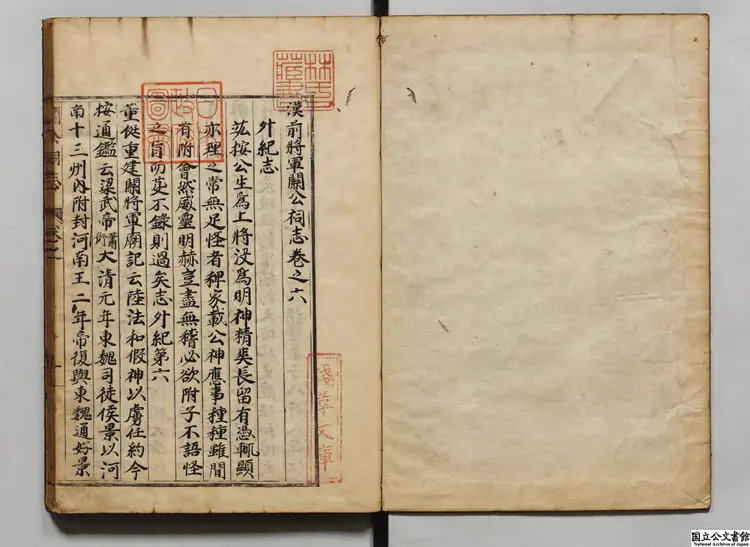 漢前將軍關公祠志卷之六
外紀志
茲按公生爲上將沒爲明神精爽長留有憑輒顯
亦理之常無足怪者稗家載公神應事種種雖間
有附會然威靈明赫豈盡無稽必欲附子不語怪
之旨而芟不錄則過矣志外紀第六
董侹重建關將軍廟記云陸法和假神以虜任約今
按通鑑云梁武帝蕭衍大清元年東魏司徒侯景以河
南十三州內附封河南王二年帝復與東魏通好景
林氏藏書
日本政圖
淺草文庫
国立公文書館
National Archives of Japan